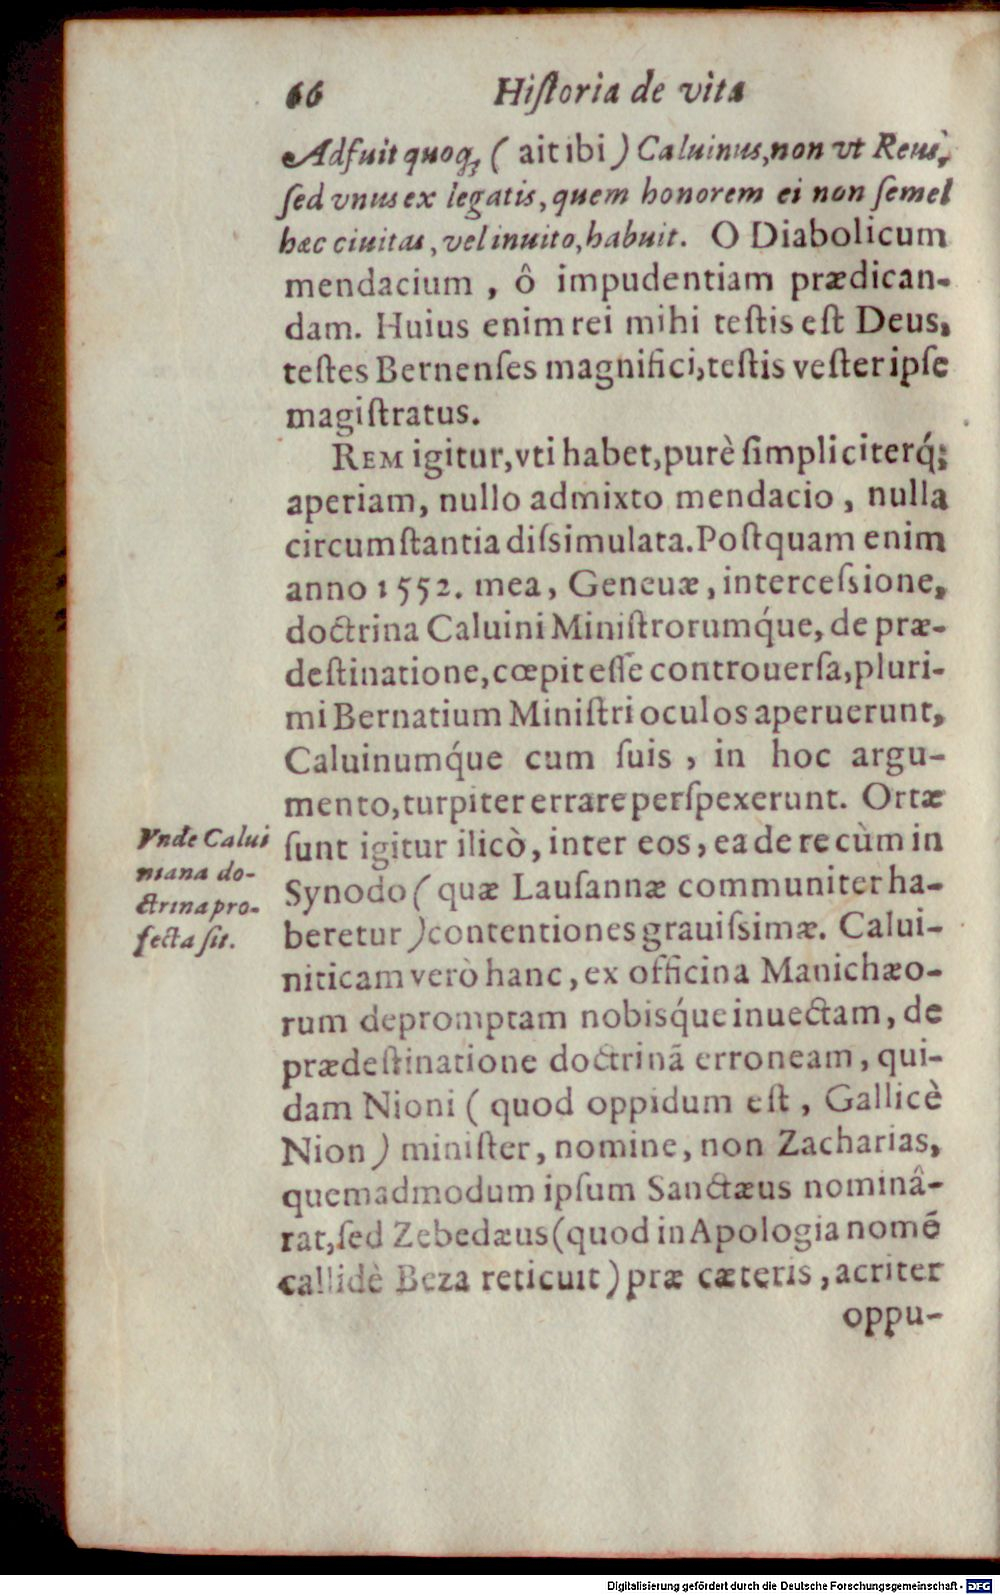 66 Hiſtoria de vita
Adfuit quoq; ( ait ibi ) Caluinus, non vt Reus,
ſed vnus ex legatis, quem honorem ei non ſemel
hæc ciuitas, vel inuito, habuit. O Diabolicum
mendacium , ô impudentiam prædican-
dam. Huius enim rei mihi teſtis eſt Deus,
teſtes Bernenſes magnifici, teſtis veſter ipſe
magiſtratus.
REM igitur, vti habet, purè ſimpliciterq́;
aperiam, nullo admixto mendacio , nulla
circumſtantia diſsimulata. Poſtquam enim
anno 1552. mea, Geneuæ, interceſsione,
doctrina Caluini Miniſtrorumq́ue, de præ-
deſtinatione, cœpit eſſe controuerſa, pluri-
mi Bernatium Miniſtri oculos aperuerunt,
Caluinumq́ue cum ſuis , in hoc argu-
mento, turpiter errare perſpexerunt. Ortæ
ſunt igitur ilicò, inter eos, ea de re cùm in
Synodo ( quæ Lauſannæ communiter ha-
beretur ) contentiones grauiſsimæ. Calui-
niticam verò hanc, ex officina Manichæo-
rum depromptam nobisq́ue inuectam, de
prædeſtinatione doctrinā erroneam, qui-
dam Nioni ( quod oppidum eſt , Gallicè
Nion ) miniſter, nomine, non Zacharias,
quemadmodum ipſum Sanctæus nominâ-
rat, ſed Zebedæus ( quod in Apologia nomē
callidè Beza reticuit ) præ cæteris , acriter
oppu-
Vnde Calui
niana do-
ctrina pro-
fecta ſit.
Digitalisierung gefördert durch die Deutsche Forschungsgemeinschaft - DFG